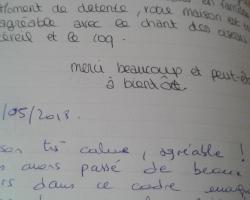 Moment de detente, votre maison est
agréable avec le chant des oiseau
et le coq.
merci beaucoup et peut-êt
à bientôt.
/05/2013.
son très calme, agréable !
avons passé de beaux
dans ce cadre